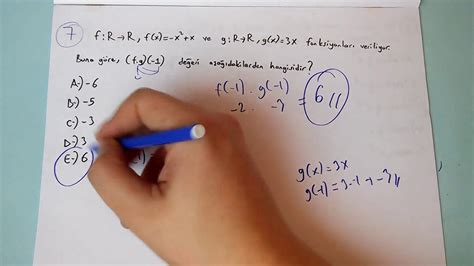 7) f:R→R, f(x)=-x²+x ve g:R→R, g(x)=3x fonksiyonları veriliyor.
Buna göre, (f.g)(-1) değeri aşağıdakilerden hangisidir?
A-) -6
B-) -5
C-) -3
D-) 3
E-) 6
f(-1) . g(-1)
-2 . -3 = 6//
g(x)=3x
g(-1)=3.-1